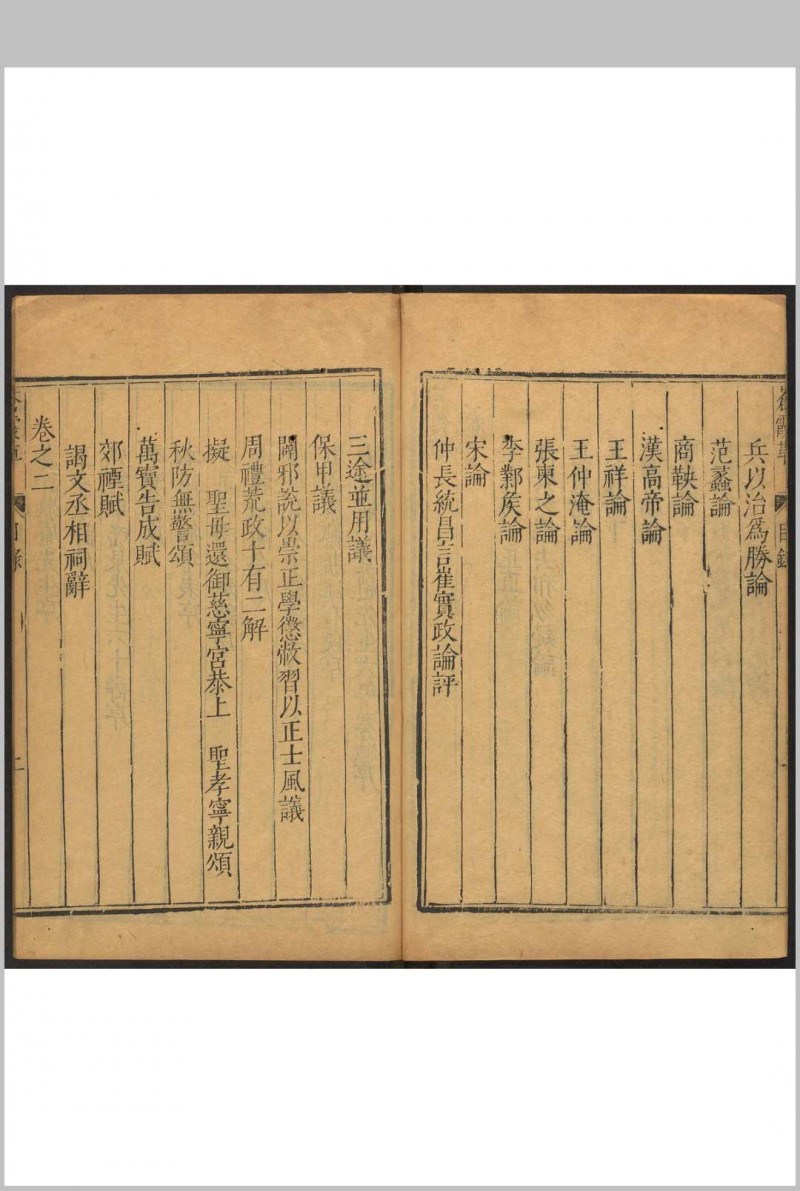 兵以治爲勝論
范蠡論
商鞅論
漢高帝論
王祥論
王仲淹論
張柬之論
李鄴矦論
宋論
仲長統昌言崔實政論評
三途並用議
保甲議
闢邪說以崇正學懲敝習以正士風議
周禮荒政十有二解
擬　聖母還御慈寧宮恭上　聖孝寧親頌
秋防無警頌
萬寶告成賦
郊禋賦
謁文丞相祠辭
卷之二